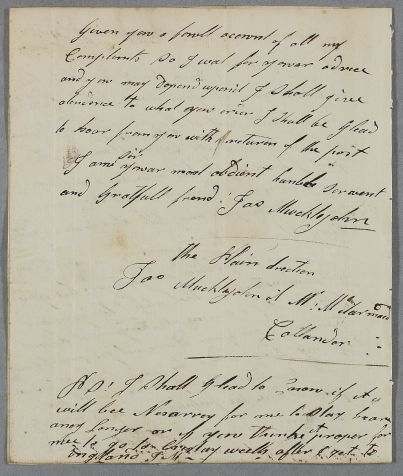 Given you a foull account of all my
Complints so I wal for yowar advice
and you may depend uponit I shall give
obedence to what you I shall be Glad
to hear from you with returen of the post
I am Sir yowar most obdient humble Servent
and Gratfull frend! Jas Mucklejohn
the Plain drection
Jas Mucklejohn at Mr
Collander
PS: I shall Glead to know if it
will bee for me to stay hear
any longer or if you thinke it proper for
mee to go to weeks after I get to
England